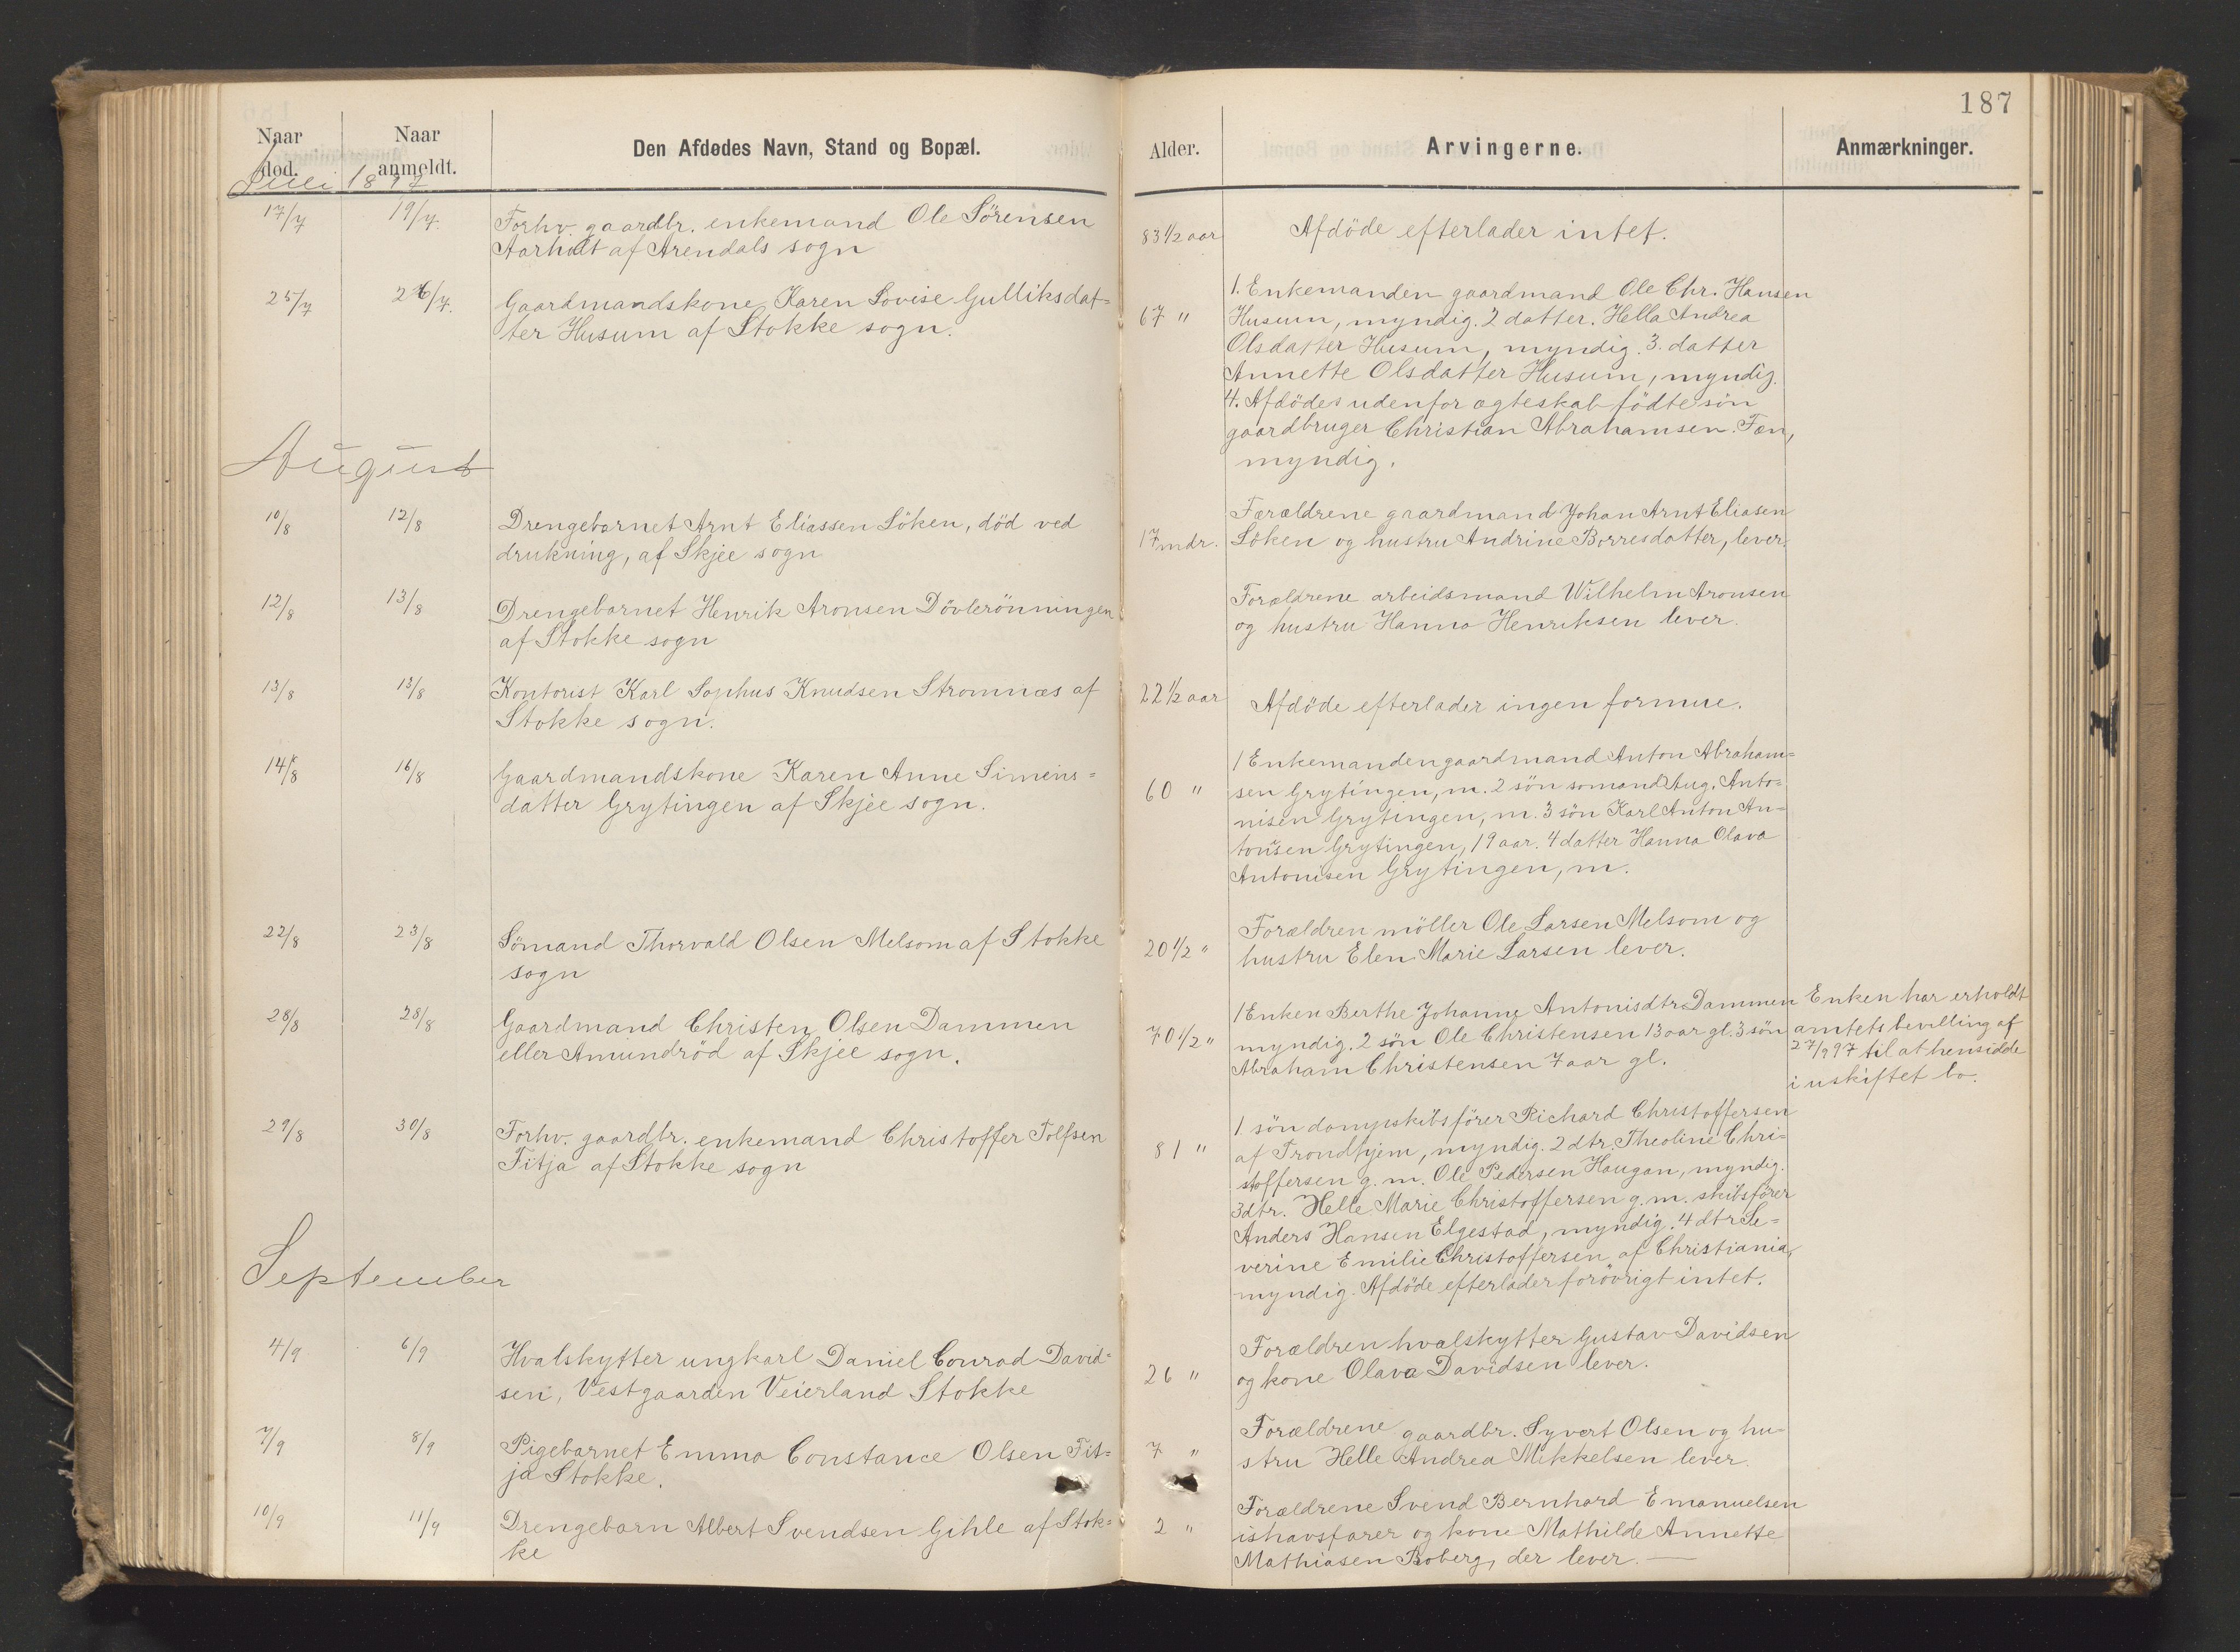 187
Naar død.
Naar anmeldt.
Den Afdødes Navn, Stand og Bopæl.
Alder.
Arvingerne.
Anmærkninger.
Juli 1897
17/7 19/7. Forhv. gaardbr. enkemand Ole Sörensen
Aarholt af Arendals sogn
83 1/2 aar
Afdöde efterlader intet.
25/7 26/7. Gaardmandskone Karen Lovise Gulliksdat=
ter Husum af Stokke sogn.
67 "
1. Enkemanden gaardmand Ole Chr. Hansen
Husum, myndig. 2 datter. Hella Andrea
Olsdatter Husum, myndig. 3. datter
Annette Olsdatter Husum, myndig.
4. Afdödes udenfor ægteskab födte sön
gaardbruger Christian Abrahamsen. Fæn,
myndig.
August
10/8 12/8 Drengebarnet Arnt Eliassen Löken, död ved
drukning, af Skjee sogn
17 mdr.
Forældrene gaardmand Johan Arnt Eliasen
Löken og hustru Andrine Borresdatter, lever.
12/8 13/8 Drengebarnet Henrik Aronsen Dövlerönningen
af Stokke sogn
Forældrene arbeidsmand Wilhelm Aronsen
og hustru Hanna Henriksen lever.
13/8 13/8 Kontorist Karl Sophus Knudsen Stromnæs af
Stokke sogn.
22 1/2 aar
Afdöde efterlader ingen formue.
14/8 16/8 Gaardmandskone Karen Anne Simens=
datter Grytingen af Skjee sogn.
60 "
1 Enkemanden gaardmand Anton Abraham=
sen Grytingen, m. 2 sön somand Aug. Anto=
nisen Grytingen, m. 3 sön Karl Anton An=
tonsen Grytingen, 19 aar. 4 datter Hanna Olava
Antonisen Grytingen, m.
22/8 23/8 Sömand Thorvald Olsen Melsom af Stokke
sogn
20 1/2 "
Forældren möller Ole Larsen Melsom og
hustru Elen Marie Larsen lever.
28/8 28/8 Gaardmand Christen Olsen Dammen
eller Amundröd af Skjee sogn.
70 1/2 "
1 Enken Berthe Johanne Antonisdtr. Dammen
myndig. 2 sön Ole Christensen 13 aar gl. 3 sön
Abraham Christensen 7 aar gl.
Enken har erholdt
amtets bevilling af
27/9 97 til at hensidde
i uskiftet bo.
29/8 30/8 Forhv. gaardbr. enkemand Christoffer Tolfsen
Fitja af Stokke sogn
81 "
1. sön dampskibsförer Richard Christoffersen
af Trondhjem, myndig. 2 dtr. Theoline Chri=
stoffersen g. m. Ole Pedersen Haugan, myndig.
3 dtr. Helle Marie Christoffersen g. m. skibsförer
Anders Hansen Elgestad, myndig. 4 dtr Se=
verine Emilie Christoffersen af Christiania,
myndig. Afdöde efterlader forövrigt intet.
September
4/9 6/9 Hvalskytter ungkarl Daniel Conrad David=
sen, Vestgaarden Veierland Stokke
26 "
Forældren hvalskytter Gustav Davidsen
og kone Olava Davidsen lever.
7/9 8/9 Pigebarnet Emma Constance Olsen Fit=
ja Stokke.
7 "
Forældrene gaardbr. Syvert Olsen og hu-
stru Helle Andrea Mikkelsen lever.
10/9 11/9 Drengebarn Albert Svendsen Gihle af Stok=
ke
2 "
Forældrene Svend Bernhard Emanuelsen
ishavsfarer og kone Mathilde Annette
Mathiasen Boberg, der lever. —